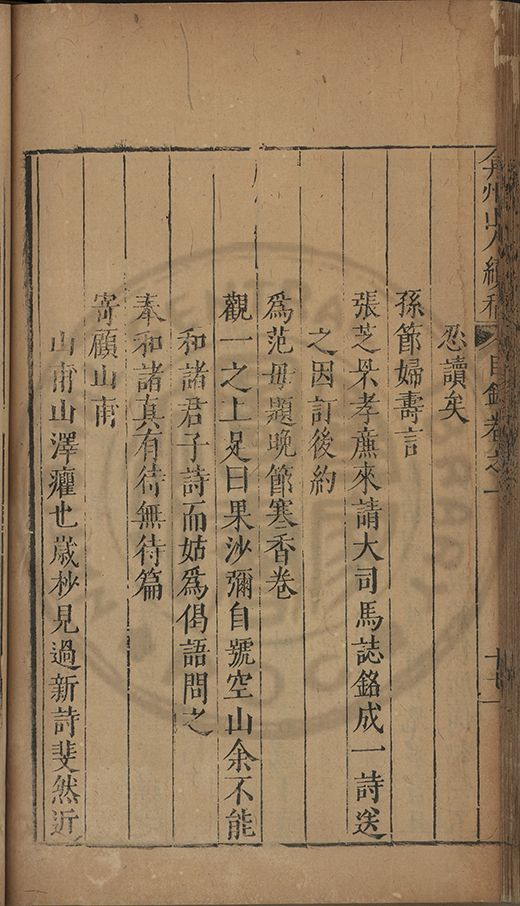 弇州山人續稿 目錄卷之一 十七
忍讀矣
孫節婦壽言
張芝泉孝廉來請大司馬誌銘成一詩送
之因訂後約
為范毋題晚節寒香卷
觀一之上足曰果沙彌自號空山余不能
和諸君子詩而姑為偈語問之
奉和諸真有待無待篇
寄顧山甫
山甫山澤癯也歲杪見過新詩斐然近